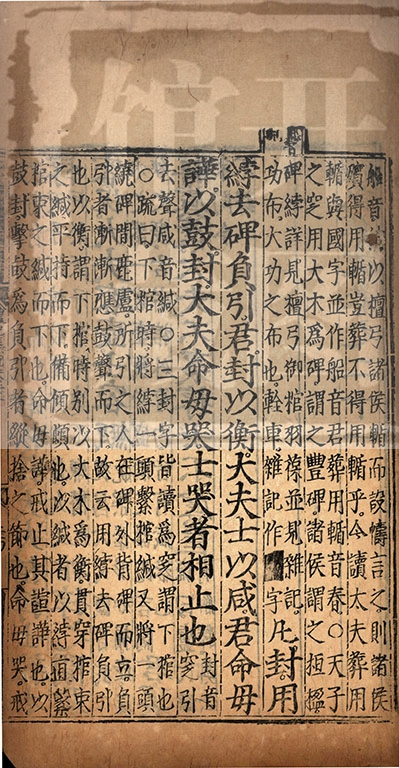 船音○以檀弓諸侯輴而設幬言之則諸侯
殯得用輴豈葬不得用輴乎今讀大夫葬用
輴與國字並作船音君葬用輴音春○天子
之窆用大木爲碑謂之豐碑諸侯謂之桓楹
碑綍詳見檀弓御棺羽葆並見雜記
功布大功之布也輇車雜記作字凡封用
綍去碑負引君封以衡大夫士以咸君命毋
譁以鼓封大夫命毋哭士哭者相止也封音窆引
去聲咸音緘○三封字皆讀爲窆謂下棺也
○疏曰下棺時將綍一頭繫棺緘又將一頭
繞碑間鹿盧所引之人在碑外背碑而立負
引者漸漸應鼓聲而下故云用綍去碑負引
也以衡謂下棺時別以大木爲衡貫穿棺束
之緘平持而下備傾頓也以緘者以綍直繫
棺束之緘而下也命毋譁戒止其諠譁也以
鼓封擊鼓爲負引者縱捨之節也命毋哭戒